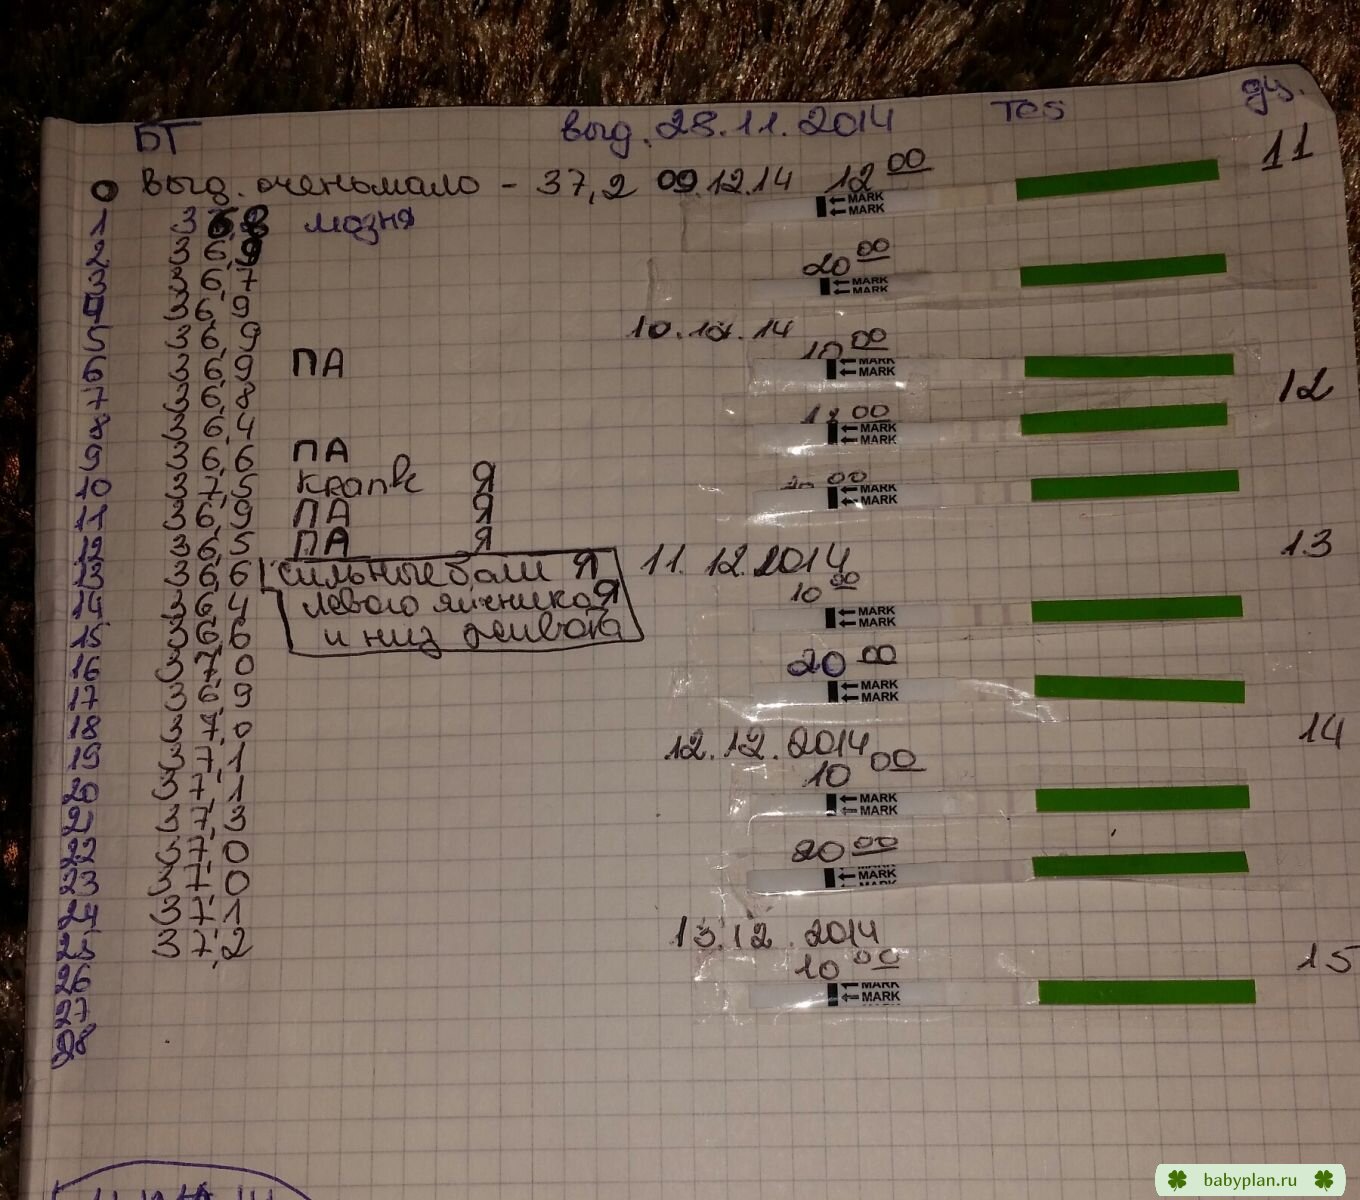 БТ выд. 28.11.2014 Tes дц.
0 выд. оченьмало - 37,2 09.12.14 12 00 11
MARK
MARK
1 36,8 мазня
2 36,9
3 36,7
4 36,9
5 36,9
6 36,9 ПА
7 36,8
8 36,4
9 36,6 ПА
10 37,5 Я
11 36,9 ПА Я
12 36,5 ПА Я
13 36,6 сильныеболи Я
14 36,4 левого яичника Я
15 36,6 и низ живота
16 37,0
17 36,9
18 37,0
19 37,1
20 37,1
21 37,3
22 37,0
23 37,0
24 37,1
25 37,2
26
27
28
20 00
MARK
MARK
10.12.14
10 00
MARK
MARK
12
00
MARK
MARK
00
MARK
MARK
11.12.2014 13
10 00
MARK
MARK
20 00
MARK
MARK
12.12.2014 14
10 00
MARK
MARK
20 00
MARK
MARK
13.12.2014
10 00 15
MARK
MARK
babyplan.ru